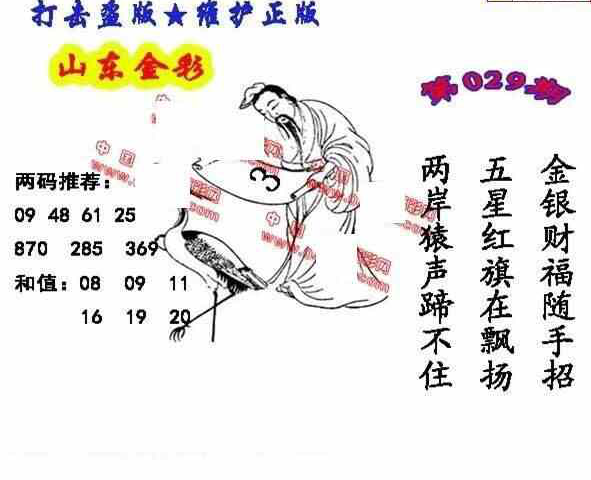 打击盗版★维护正版
山东金彩
第029期
两码推荐：
09 48 61 25
870 285 369
和值：08 09 11
16 19 20
3
金银财福随手招
五星红旗在飘扬
两岸猿声蹄不住